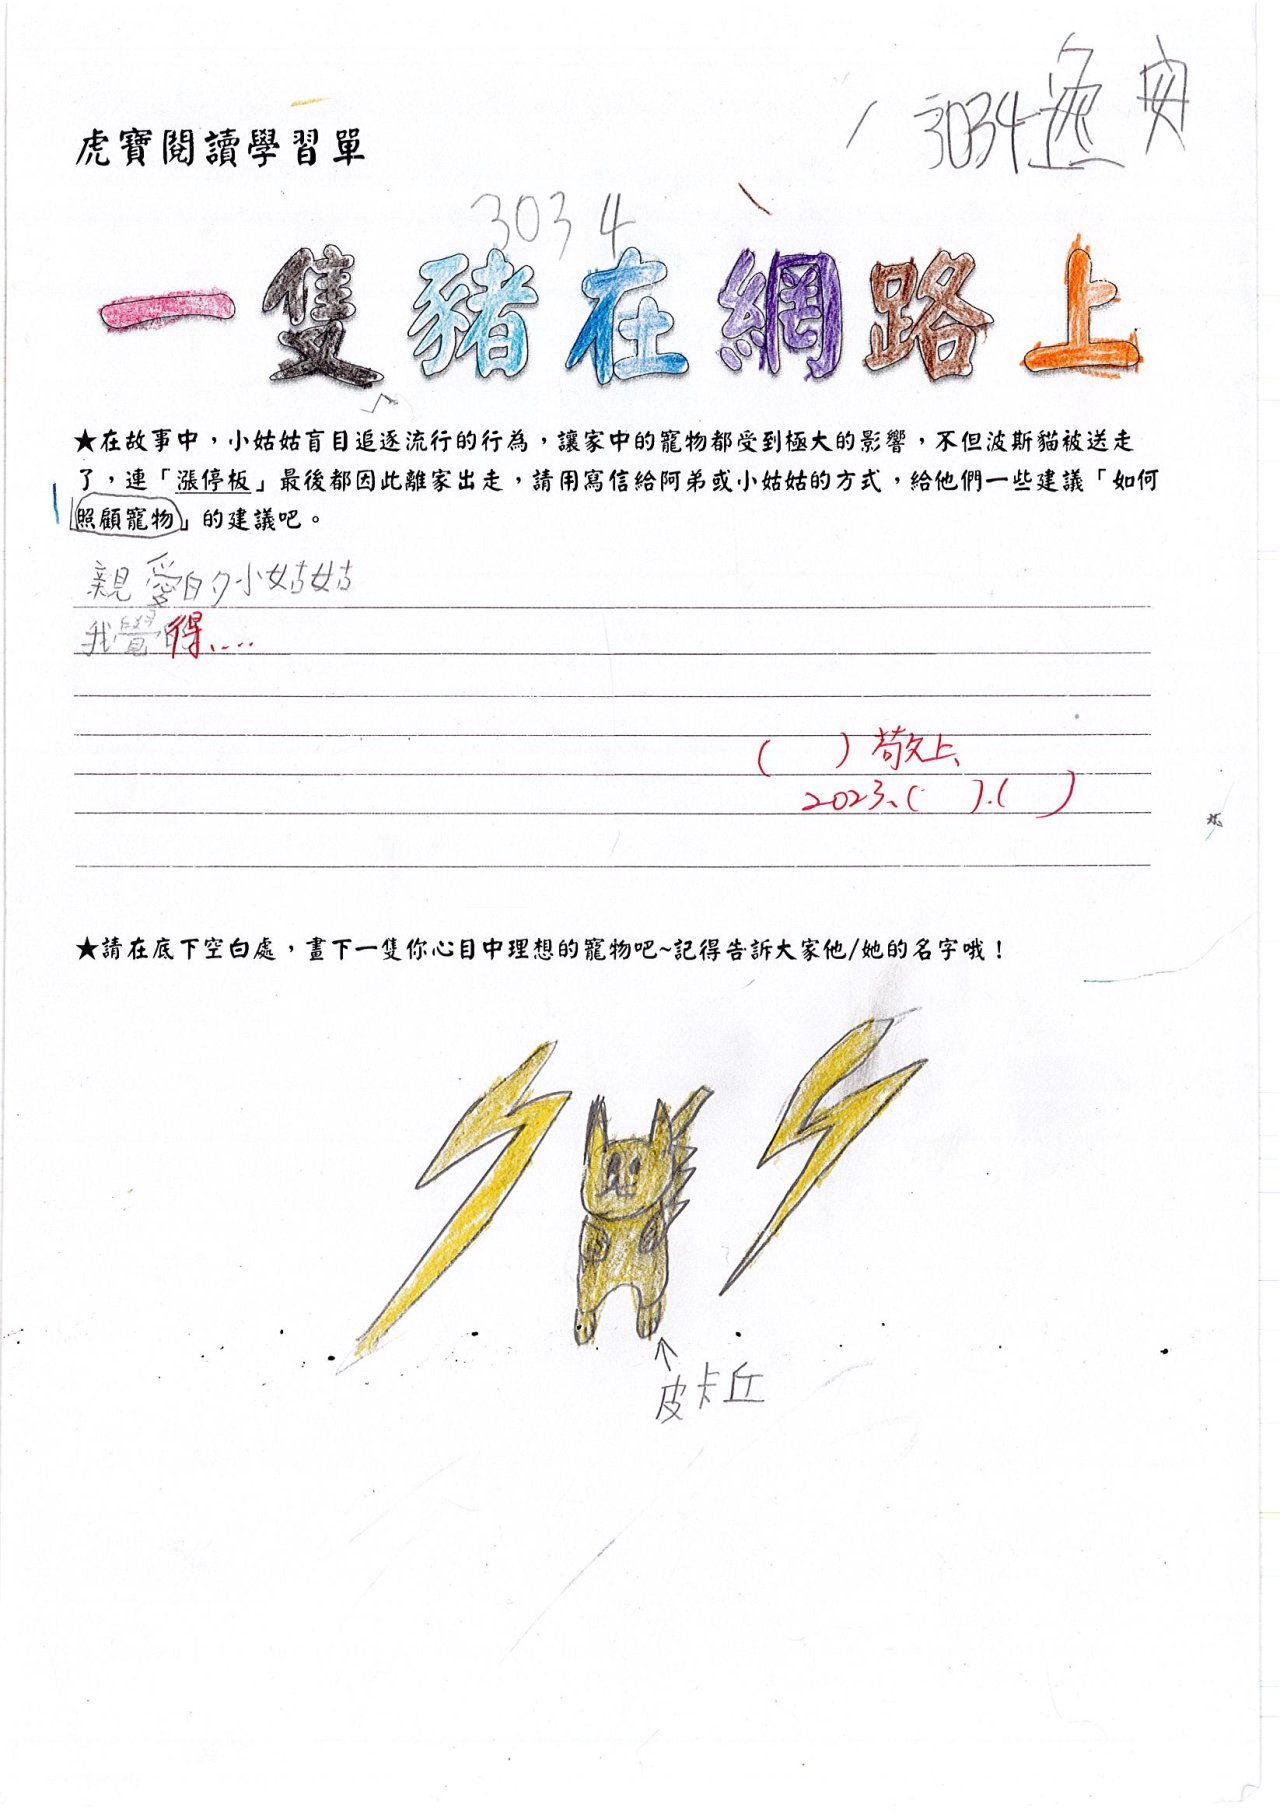 3034 逸安
虎寶閱讀學習單
3034
一隻豬在網路上
★在故事中，小姑姑盲目追逐流行的行為，讓家中的寵物都受到極大的影響，不但波斯貓被送走
了，連「漲停板」最後都因此離家出走，請用寫信給阿弟或小姑姑的方式，給他們一些建議「如何
照顧寵物」的建議吧。
親愛的小姑姑
我覺得.....
(　　)敬上、
2023.(　　).(　　)
★請在底下空白處，畫下一隻你心目中理想的寵物吧~記得告訴大家他/她的名字哦！
皮卡丘